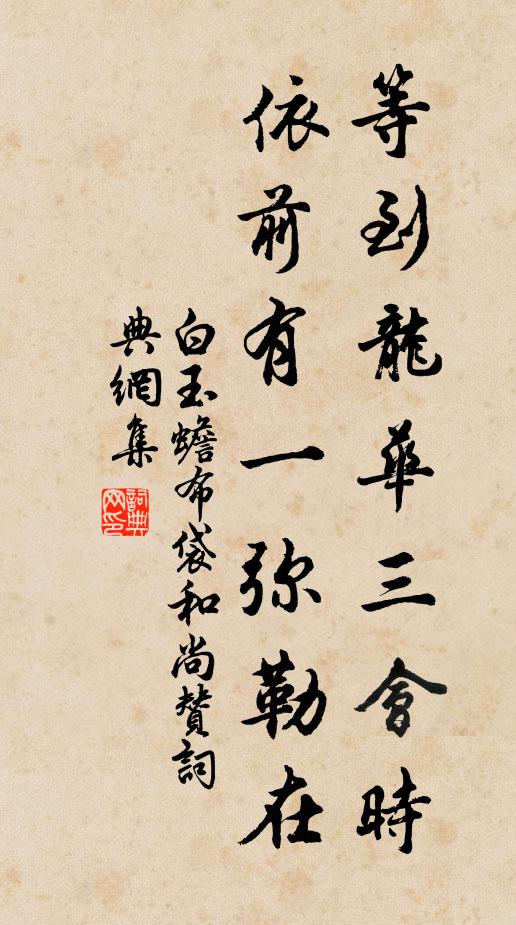 等到龍華三會時
依前有一弥勒在
白玉蟾布袋和尚贊詞
典網集
詞典网印